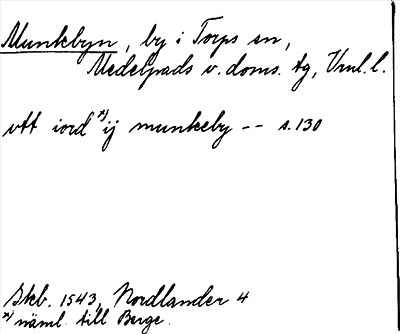 Munkbyn, by i Torps sn,
Medelpads v. doms. tg, Vnl. l.
vtt iord x) ij munkeby -- s. 130
Skb. 1543, Nordlander 4
x) näml. till Berge.